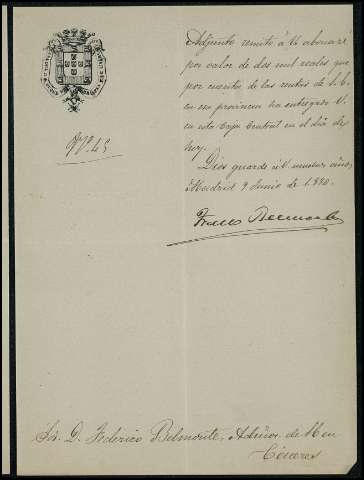 Nº 45
Adjunto remito á V. abonaré
por valor de dos mil reales que
por cuenta de las rentas de S. E.
en esa provincia ha entregado V.
en esta Caja Central en el día de
hoy.
Dios guarde á V. muchos años.
Madrid 9 Junio de 1.890.
Sor. D. Federico Belmonte, Admor. de
Cáceres